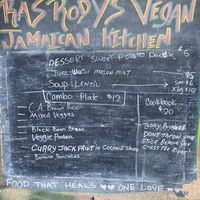 RASRODYS VEGAN
JAMAICAN KITCHEN
DESSERT Sweet Potato Puddin $5
Juice: Water melon mint $5
Soup: Lentil
Combo Plate $12
Cookbook
20
Brown Rice
Mixed Veggies
Black Bean Stew
Veggie Protein
CURRY JACKFRUIT in Coconut Sauce
Banana Pancakes
DON'T THROW YOUR
STICK BEFORE YOU
CROSS THE River!
FOOD THAT HEALS ONE LOVE